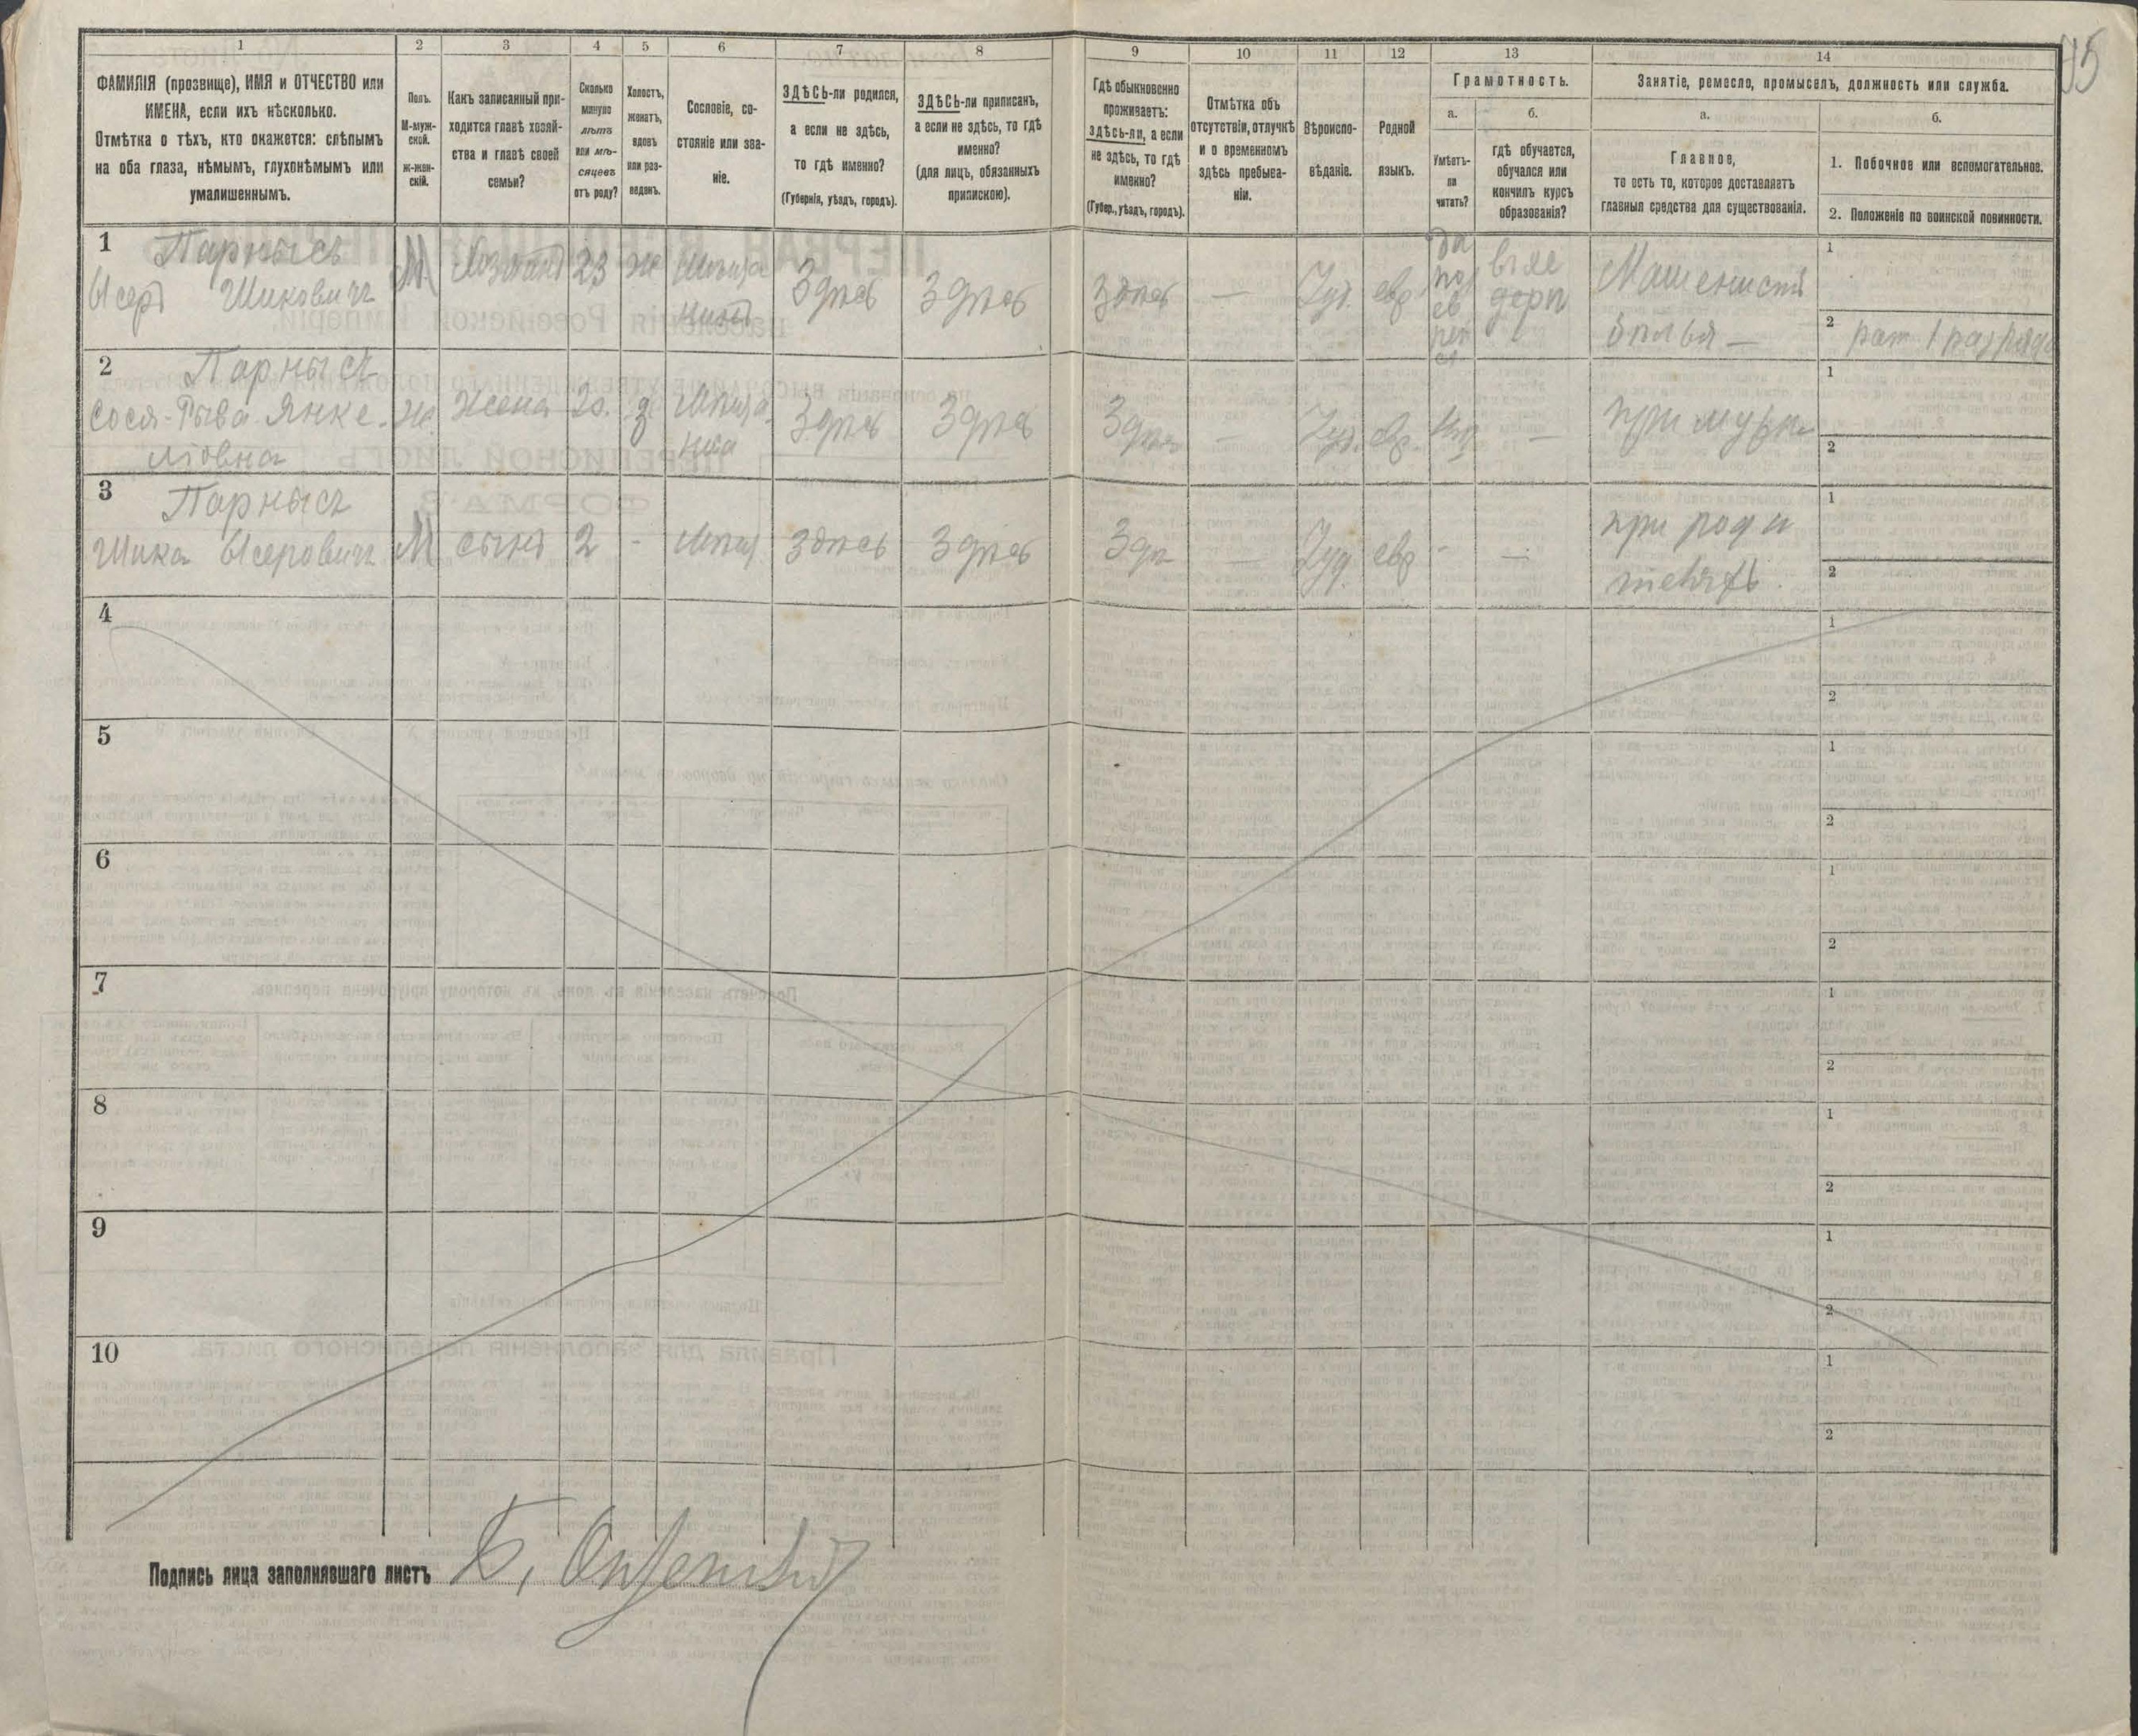 75
1 2 3 4 5 6 7 8 9 10 11 12 13 14
ФАМИЛІЯ (прозвище), ИМЯ и ОТЧЕСТВО или
ИМЕНА, если ихъ нѣсколько.
Отмѣтка о тѣхъ, кто окажется: слѣпымъ
на оба глаза, нѣмымъ, глухонѣмымъ или
умалишеннымъ.
Полъ.
М-муж-
ской.
ж-жен-
скій.
Какъ записанный при-
ходится главѣ хозяй-
ства и главѣ своей
семьи?
Сколько
минуло
лѣтъ
или мѣ-
сяцевъ
отъ роду?
Холостъ,
женатъ,
вдовъ
или раз-
веденъ.
Сословіе, со-
стояніе или зва-
ніе.
ЗДѢСЬ-ли родился,
а если не здѣсь,
то гдѣ именно?
(Губернія, уѣздъ, городъ).
ЗДѢСЬ-ли приписанъ,
а если не здѣсь, то гдѣ
именно?
(для лицъ, обязанныхъ
припискою).
Гдѣ обыкновенно
проживаетъ:
здѣсь-ли, а если
не здѣсь, то гдѣ
именно?
(Губер., уѣздъ, городъ).
Отмѣтка объ
отсутствіи, отлучкѣ
и о временномъ
здѣсь пребыва-
ніи.
Вѣроиспо-
вѣданіе.
Родной
языкъ.
Грамотность.
а.
Умѣетъ-
ли
читать?
б.
гдѣ обучается,
обучался или
кончилъ курсъ
образованія?
Занятіе, ремесло, промыселъ, должность или служба.
а.
Главное,
то есть то, которое доставляетъ
главныя средства для существованія.
б.
1. Побочное или вспомогательное.
2. Положеніе по воинской повинности.
1 Парнысъ
Исеръ Шиковичъ М Хозяинъ 23 ж Мѣща
нинъ Здѣсь Здѣсь Здѣсь — Іуд. евр. да
Машенистъ
бѣлья — 1
2 рат 1 разряда
2 Парнысъ
Сося-Рыва Янке-
ліовна ж. Жена 20. з Мѣща
нка Здѣсь Здѣсь Здѣсь — Іуд. евр. —
при мужѣ 1
2
3 Парнысъ
Шика Исеровичъ М сынъ 2 - Мѣщ. здѣсь Здѣсь Здѣ — Іуд. евр - —
при роди
теляхъ. 1
2
4 1
2
5 1
2
6 1
2
7 1
2
8 1
2
9 1
2
10 1
2
Подпись лица заполнявшаго листъ